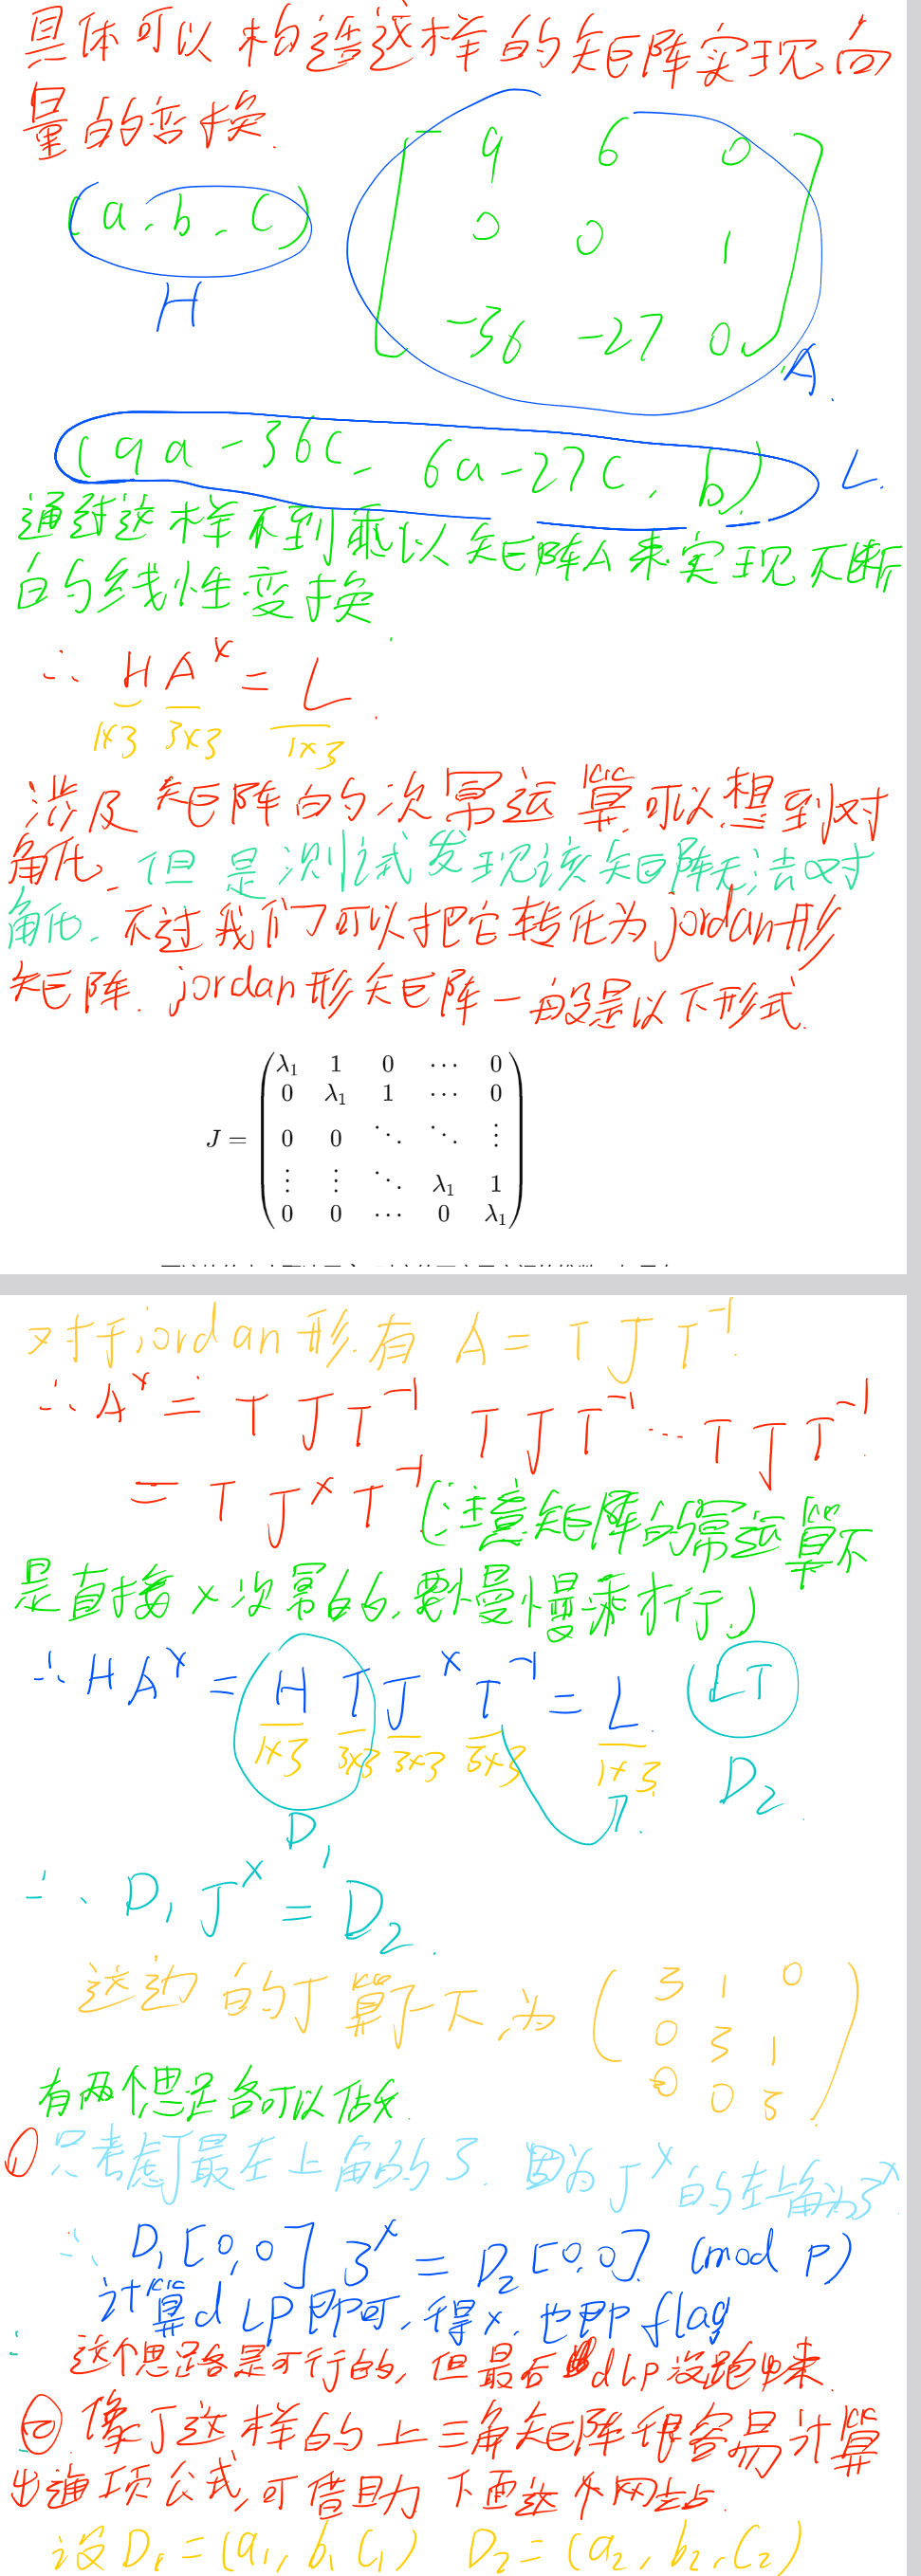 具体可以构造这样的矩阵实现向
量的变换.
(a, b, c)
H
[ 9 6 0
0 0 1
-36 -27 0 ]
A.
(9a-36c, 6a-27c, b) L.
通过这样不到乘以矩阵A来实现不断
的线性变换
∴ HA^x = L
1×3 3×3 1×3
涉及矩阵的次幂运算,可以想到对
角化. 但是测试发现该矩阵无法对
角化. 不过我们可以把它转化为jordan形
矩阵. jordan形矩阵一般是以下形式.
J = (λ₁ 1 0 ⋯ 0
0 λ₁ 1 ⋯ 0
0 0 ⋱ ⋱ ⋮
⋮ ⋮ ⋱ λ₁ 1
0 0 ⋯ 0 λ₁)
对于jordan形.有 A = TJT⁻¹.
∴ A^x = TJT⁻¹ TJT⁻¹ ⋯ TJT⁻¹.
= TJ^xT⁻¹ (注意矩阵的幂运算不
是直接x次幂的,要慢慢乘才行.)
∴ HA^x = HTJ^xT⁻¹ = L. (LT
1×3 3×3 3×3 3×3 1×3
D₁ D₂
∴ D₁J^x = D₂.
这边的J算了一下,为 (3 1 0
0 3 1
0 0 3)
有两个思路可以做.
① 只考虑J最左上角的3. 因为J^x的左上角为3^x
∴ D₁[0,0] 3^x = D₂[0,0]. (mod p)
计算dLP即可,得x,也即flag
这个思路是可行的,但最后dLp没跑出来.
② 像J这样的上三角矩阵很容易计算
出通项公式,可借助下面这个网站.
设D₁=(a₁,b₁,c₁) D₂=(a₂,b₂,c₂)